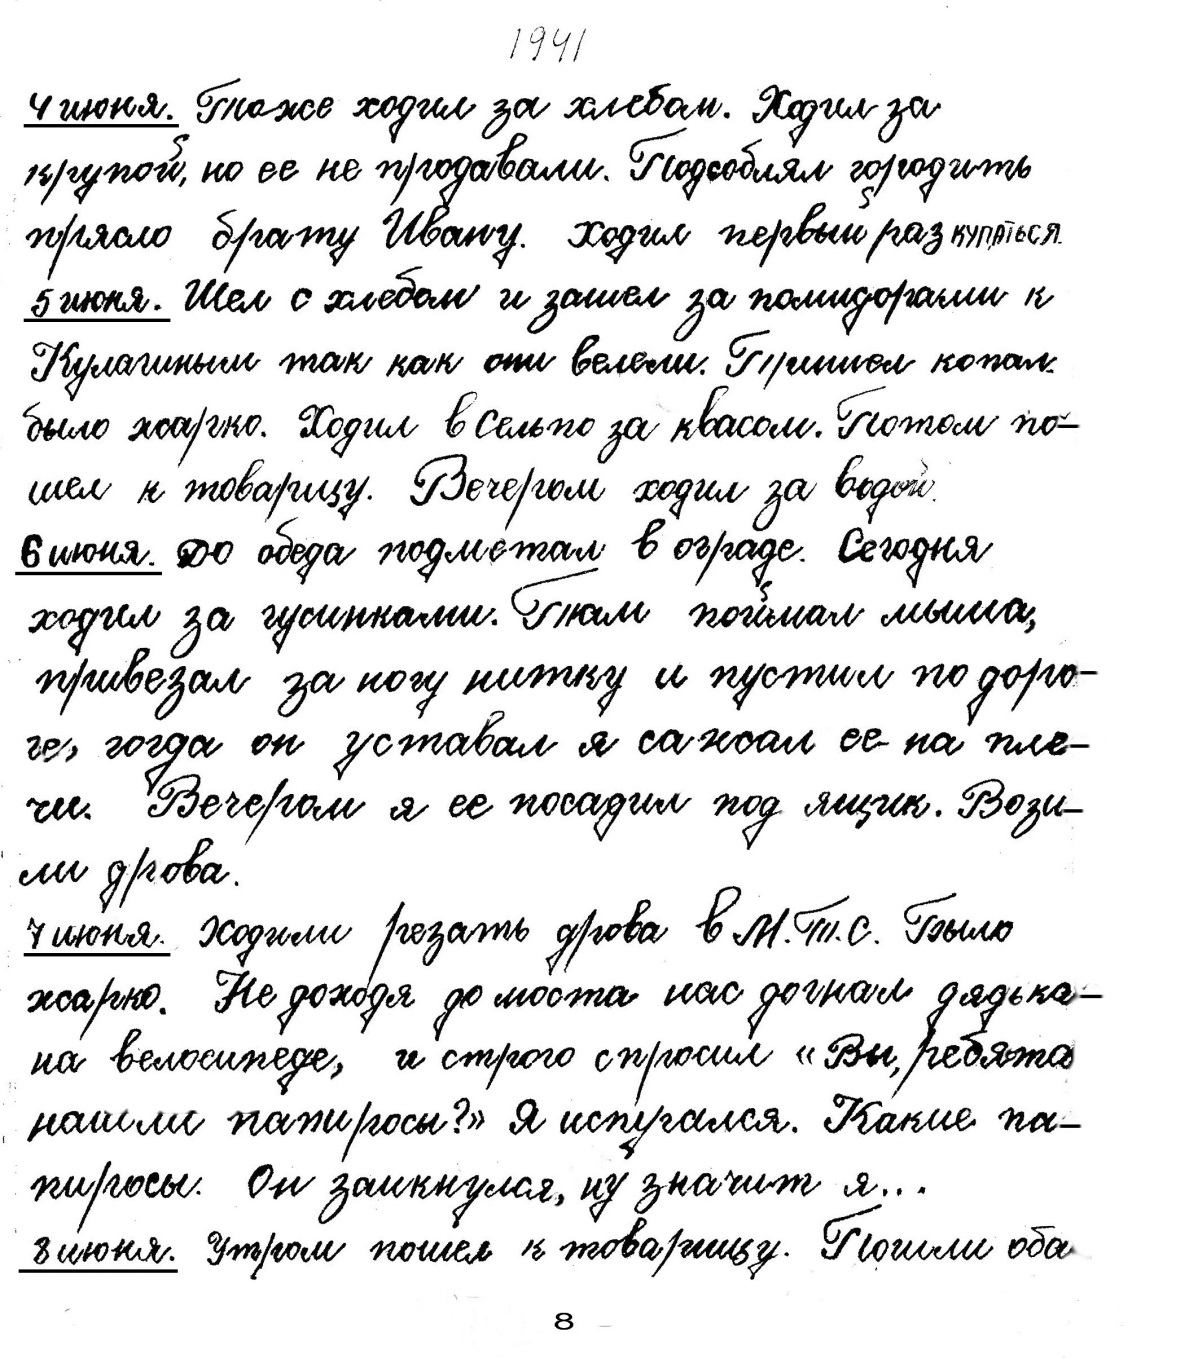 1941
4 июня. Тоже ходил за хлебом. Ходил за
крупой, но ее не продавали. Подсоблял городить
прясло брату Ивану. Ходил первый раз купаться.
5 июня. Шел с хлебом и зашел за помидорами к
Кулагиным так как они велели. Пришел копал.
было жарко. Ходил в Сельпо за квасом. Потом по-
шел к товарищу. Вечером ходил за водой.
6 июня. До обеда подметал в ограде. Сегодня
ходил за гусинками. Там поймал мыша,
привезал за ногу нитку и пустил по доро-
ге, гогда он уставал я сажал ее на пле-
чи. Вечером я ее посадил под ящик. Вози-
ли дрова.
7 июня. Ходили резать дрова в М.Т.С. Было
жарко. Не доходя до моста нас догнал дядька-
на велосипеде, и строго спросил «Вы, ребята
нашли папиросы?» Я испугался. Какие па-
пиросы. Он заикнулся, ну значит я...
8 июня. Утром пошел к товарищу. Пошли оба
8